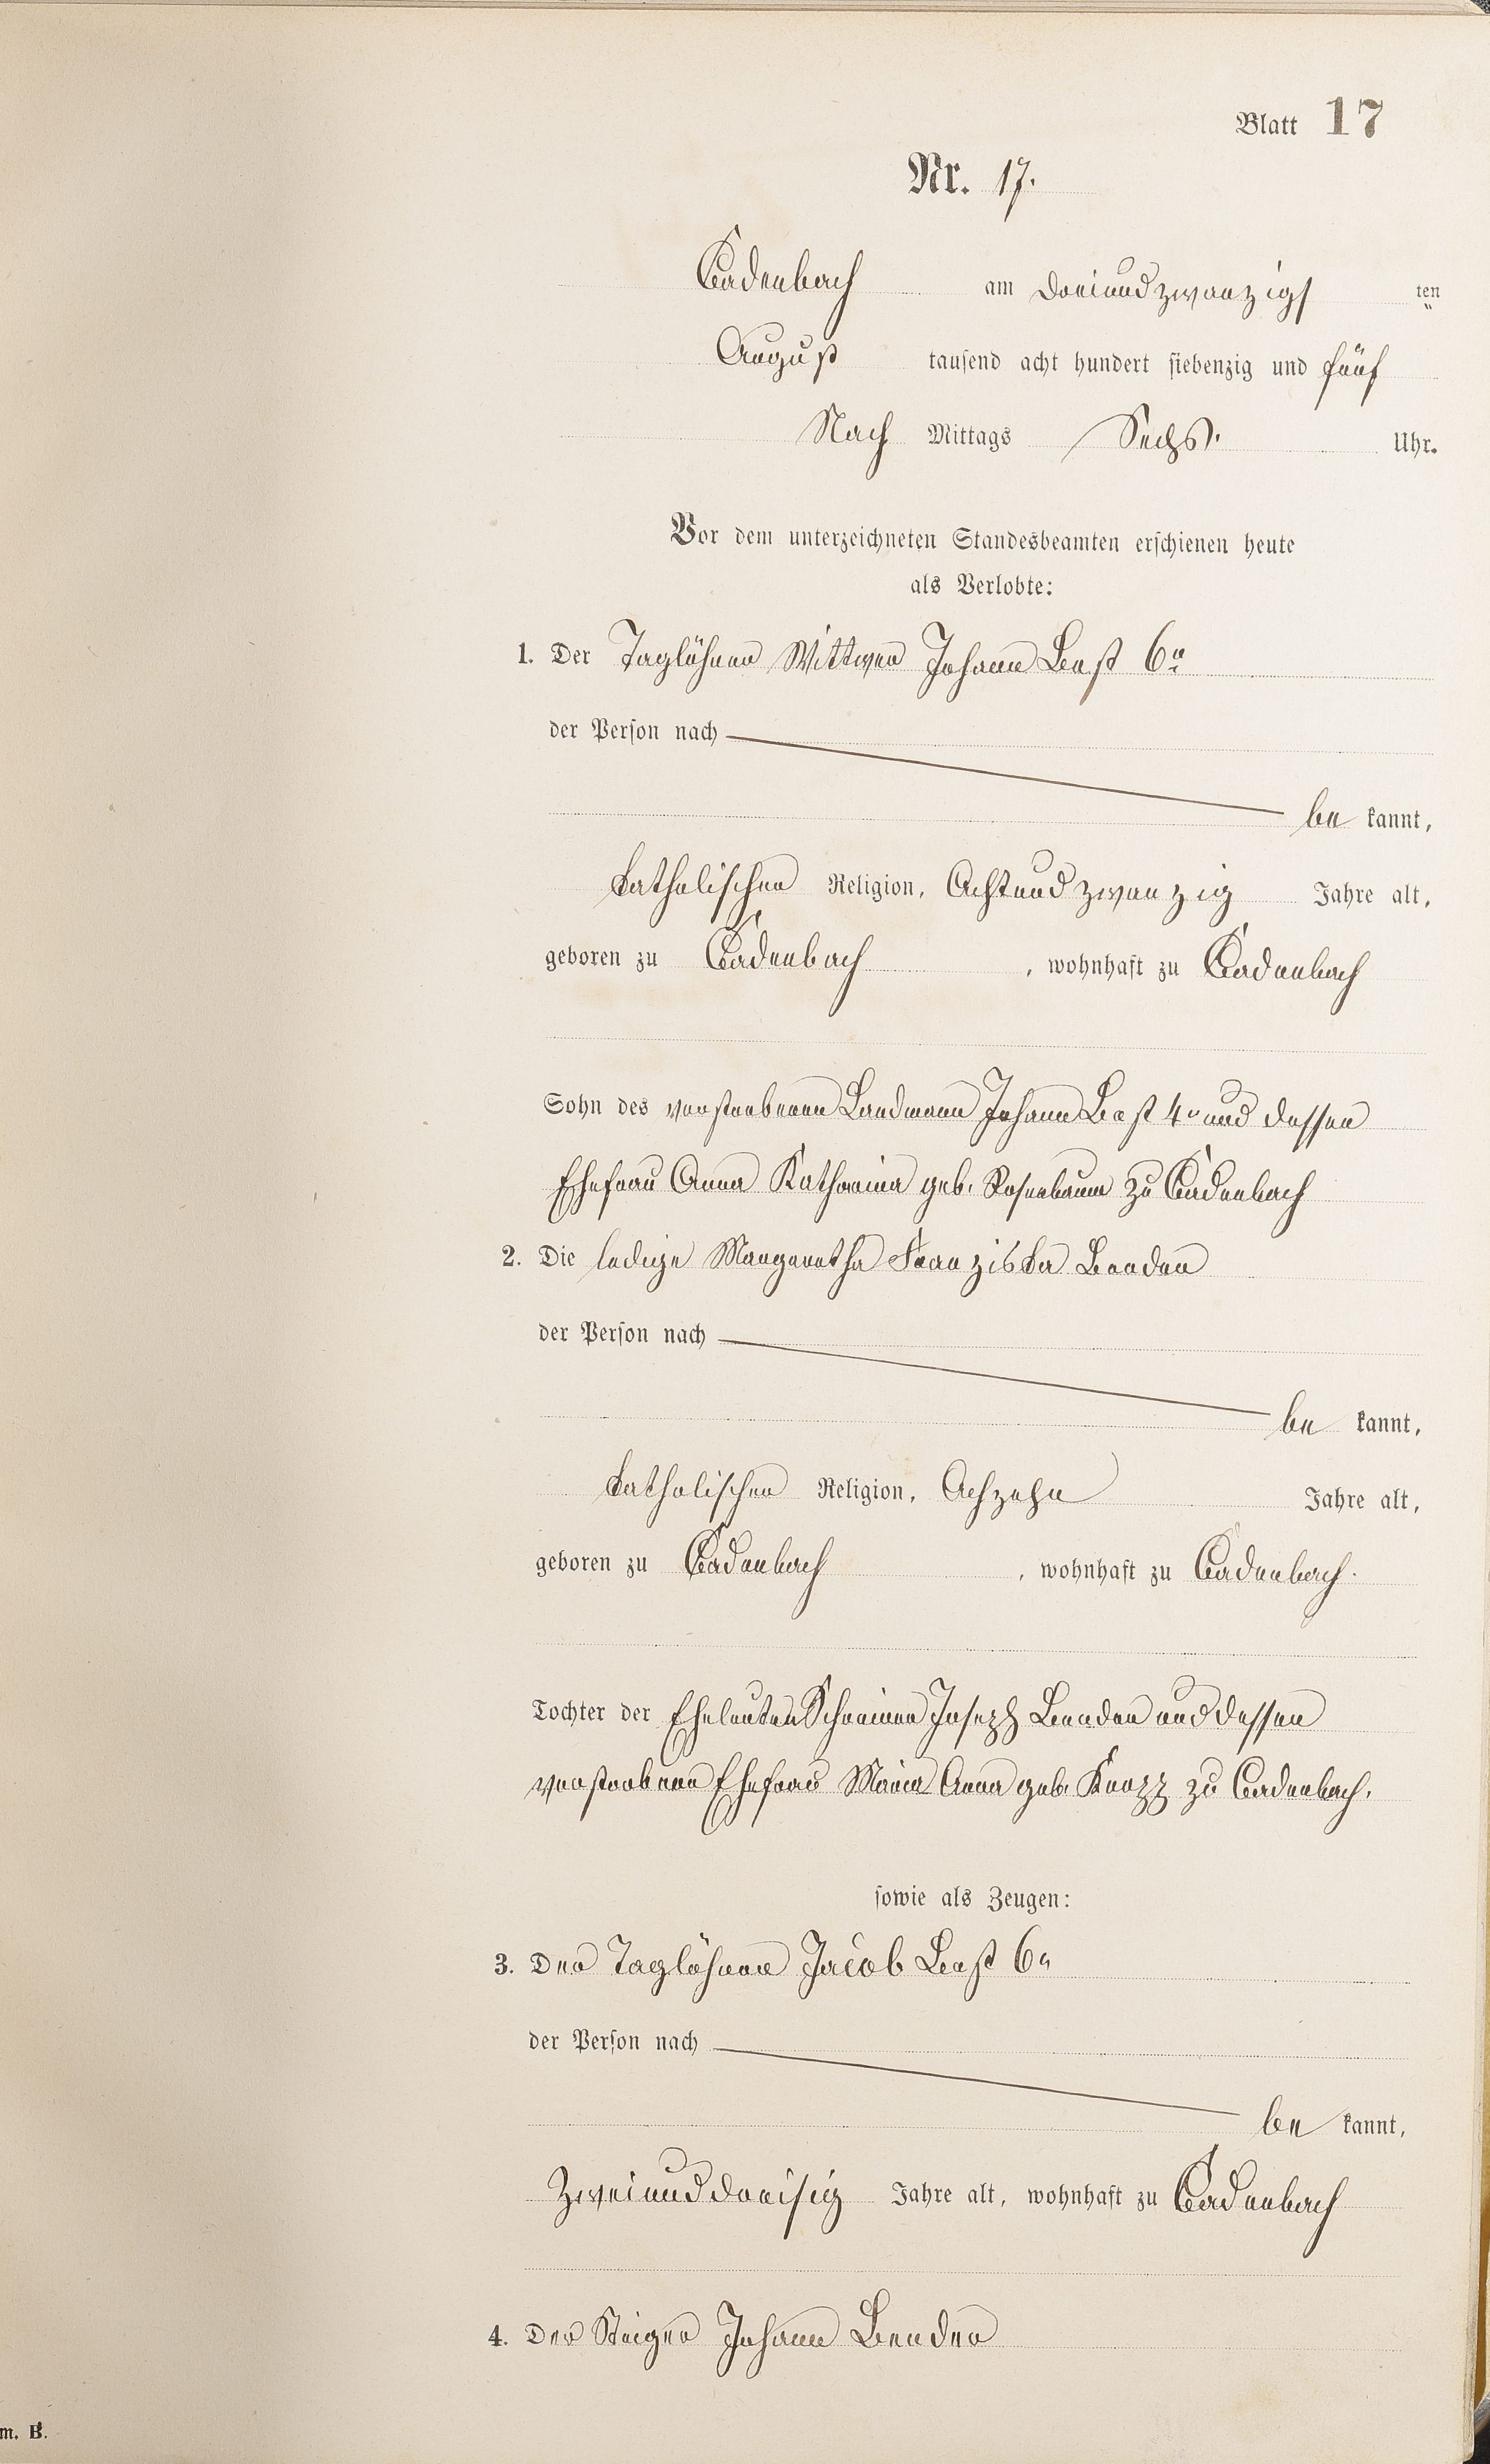 Blatt 17
Nr. 17.
Cadenbach am dreiundzwanzigs ten
August tausend acht hundert siebenzig und fünf
Nach Mittags Sechs. Uhr.
Vor dem unterzeichneten Standesbeamten erschienen heute
als Verlobte:
1. Der Taglöhner Wittwer Johann Best 6r
der Person nach
be kannt,
katholischer Religion, Achtundzwanzig Jahre alt,
geboren zu Cadenbach, wohnhaft zu Cadenbach
Sohn des verstorbenen Landmann Johann Best 4r und dessen
Ehefrau Anna Katharina geb. Rosenbaum zu Cadenbach
2. Die ledige Margaretha Franziska Bender
der Person nach
be kannt,
katholischer Religion, Achzehn Jahre alt,
geboren zu Cadenbach, wohnhaft zu Cadenbach.
Tochter der Eheleuten Schreiner Joseph Bender und dessen
verstorbene Ehefrau Maria Anna geb. Knopp zu Cadenbach.
sowie als Zeugen:
3. Der Taglöhner Jacob Best 6r
der Person nach
be kannt,
Zweiunddreisig Jahre alt, wohnhaft zu Cadenbach
4. Der Steiger Johann Bender
m. B.